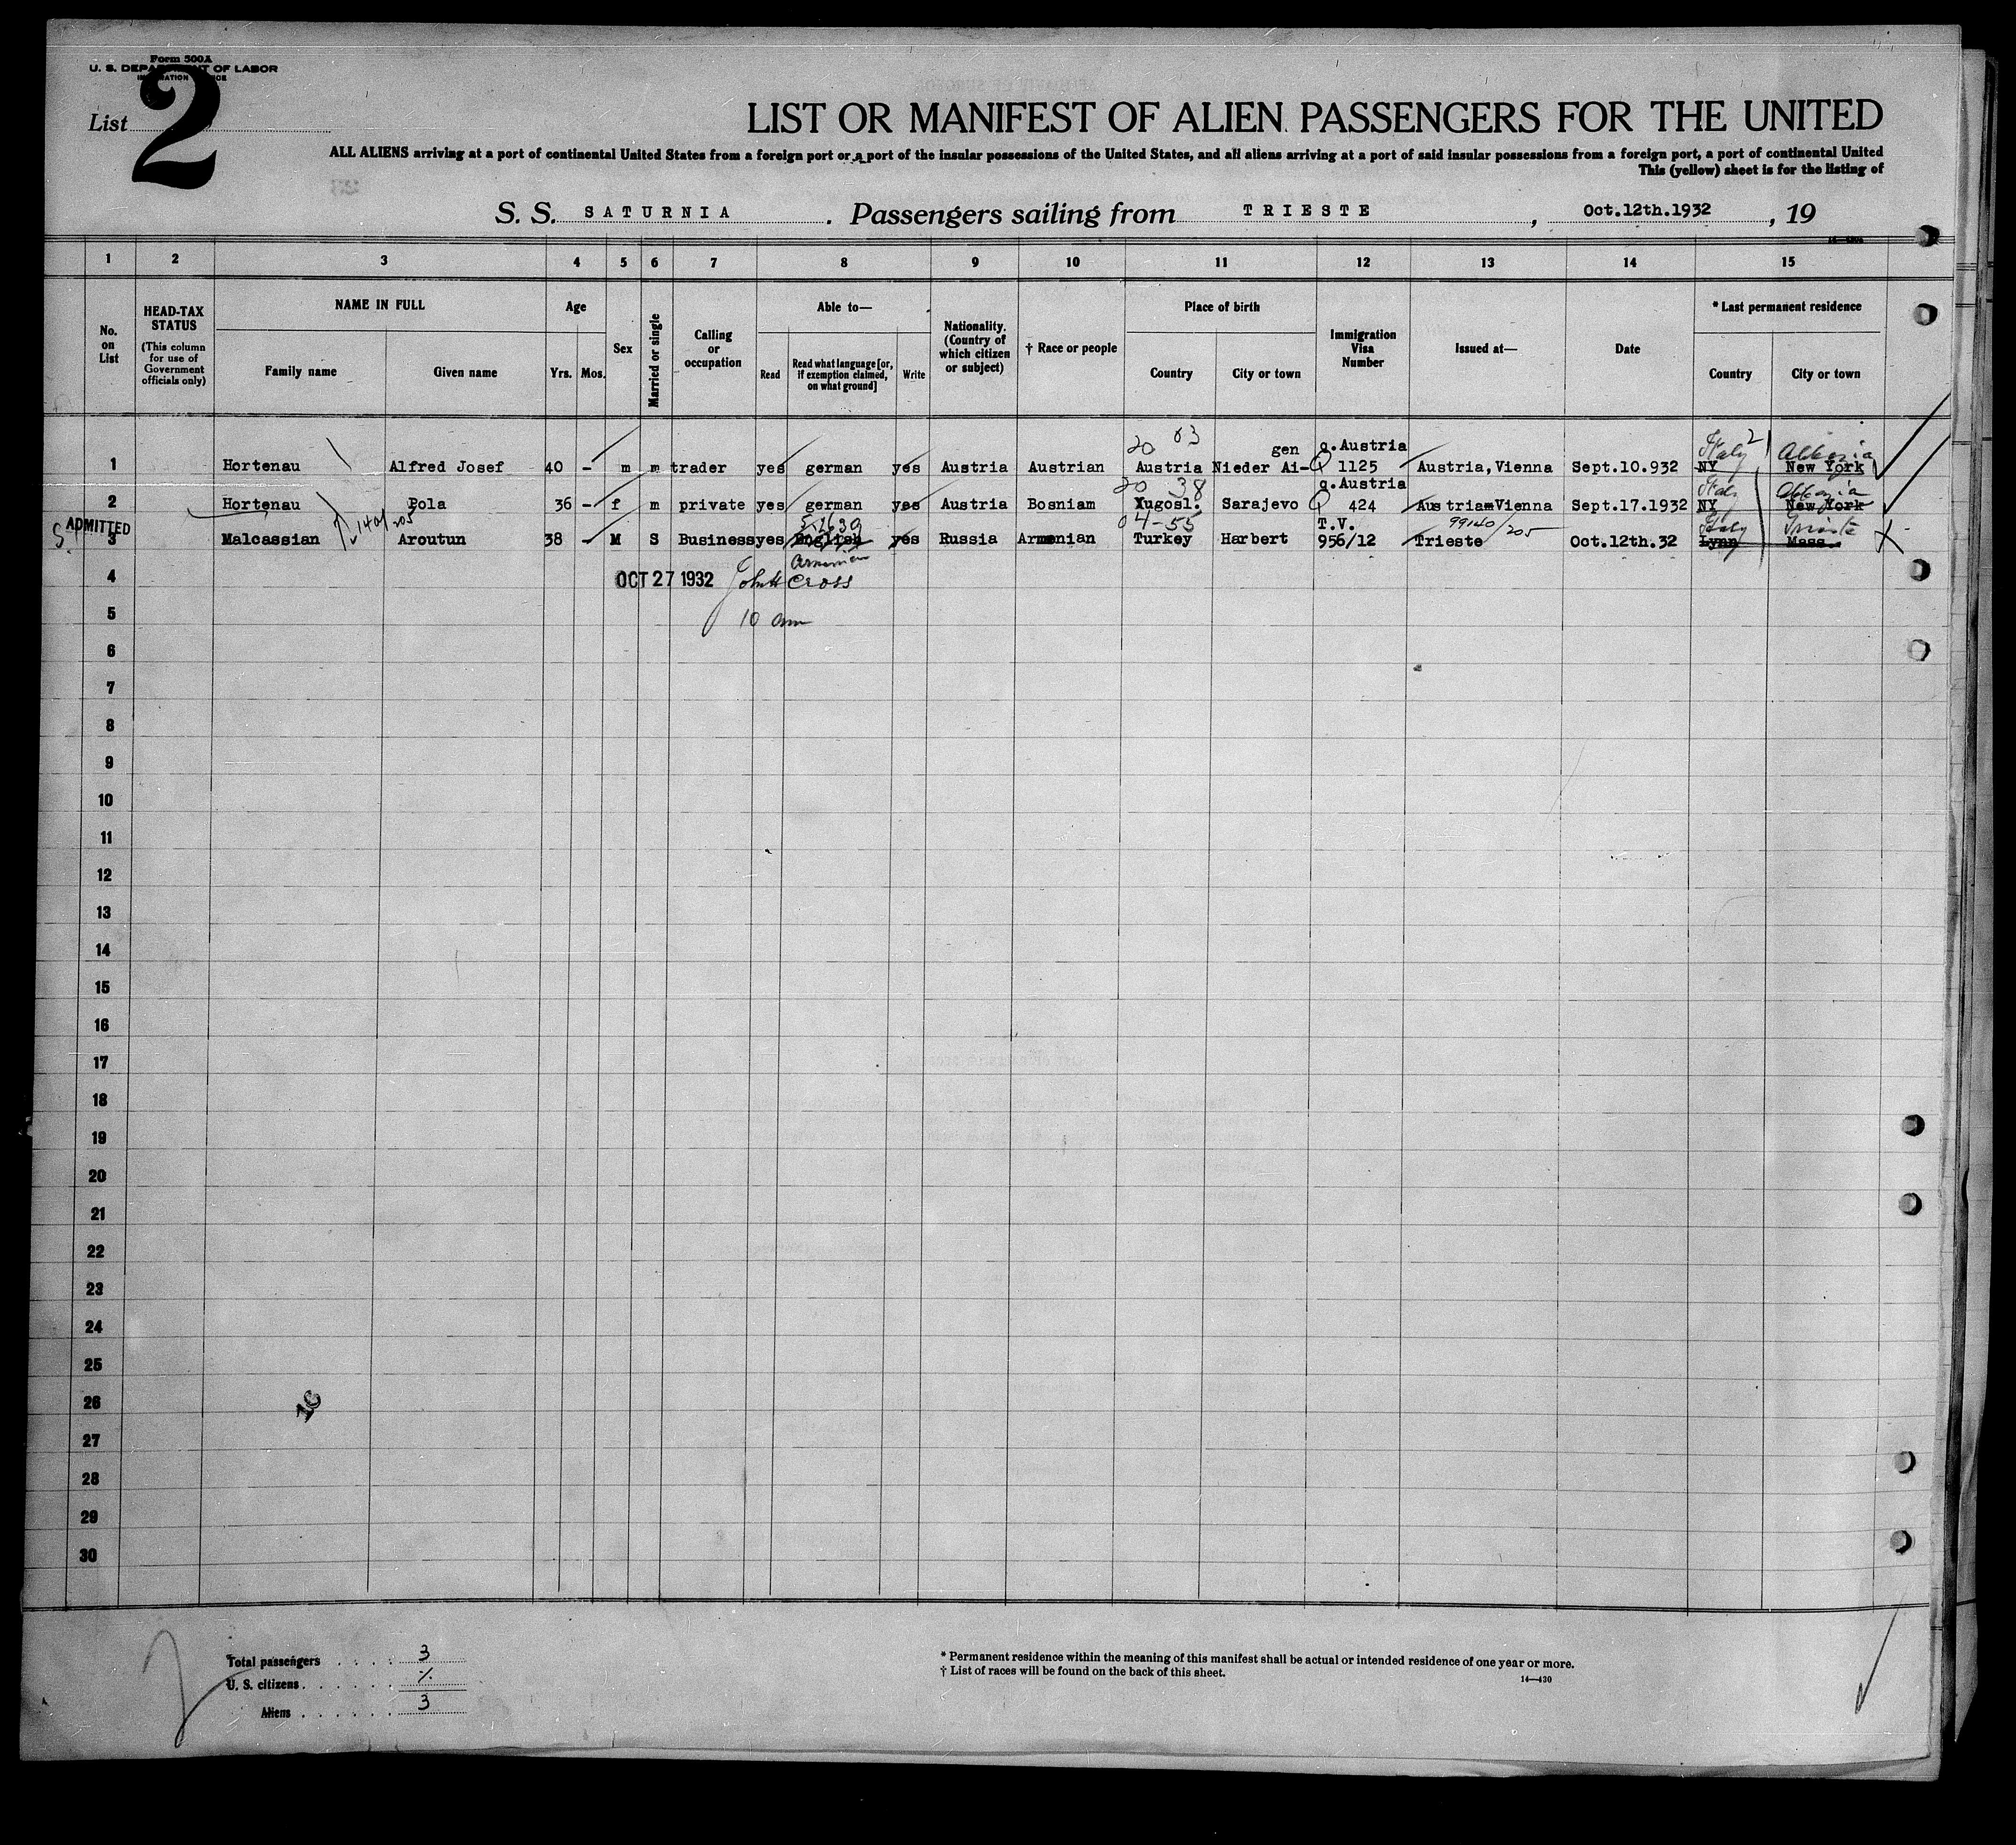 Form 500A
U. S. DEPARTMENT OF LABOR
List 2
LIST OR MANIFEST OF ALIEN PASSENGERS FOR THE UNITED
ALL ALIENS arriving at a port of continental United States from a foreign port or a port of the insular possessions of the United States, and all aliens arriving at a port of said insular possessions from a foreign port, a port of continental United
This (yellow) sheet is for the listing of
S. S. SATURNIA. Passengers sailing from TRIESTE, Oct.12th.1932, 19
1 2 3 4 5 6 7 8 9 10 11 12 13 14 15
No. on List
HEAD-TAX STATUS (This column for use of Government officials only)
NAME IN FULL
Family name Given name
Age
Yrs. Mos.
Sex
Married or single
Calling or occupation
Able to—
Read Read what language [or, if exemption claimed, on what ground] Write
Nationality. (Country of which citizen or subject)
† Race or people
Place of birth
Country City or town
Immigration Visa Number
Issued at—
Date
* Last permanent residence
Country City or town
20 03 gen q.Austria Italy 2 Abbazia
1 Hortenau Alfred Josef 40 - m m trader yes german yes Austria Austrian Austria Nieder Ai- Q 1125 Austria,Vienna Sept.10.932 NY New York
20 38 q.Austria Italy Abbazia
2 Hortenau Pola 36 - f m private yes german yes Austria Bosniam Yugosl. Sarajevo Q 424 Austria-Vienna Sept.17.1932 NY New York
ADMITTED 1401/205 04-55 T.V. 99140/205 Italy Trieste
3 Malcassian Aroutun 38 - M S Business yes English yes Russia Armenian Turkey Harbert 956/12 Trieste Oct.12th.32 Lynn Mass.
Armenian
4 OCT 27 1932 John H Cross
5 10 am
6
7
8
9
10
11
12
13
14
15
16
17
18
19
20
21
22
23
24
25
26
27
28
29
30
Total passengers . . . . 3
U. S. citizens . . . . . . %
Aliens . . . . . . 3
* Permanent residence within the meaning of this manifest shall be actual or intended residence of one year or more.
† List of races will be found on the back of this sheet.
14—430